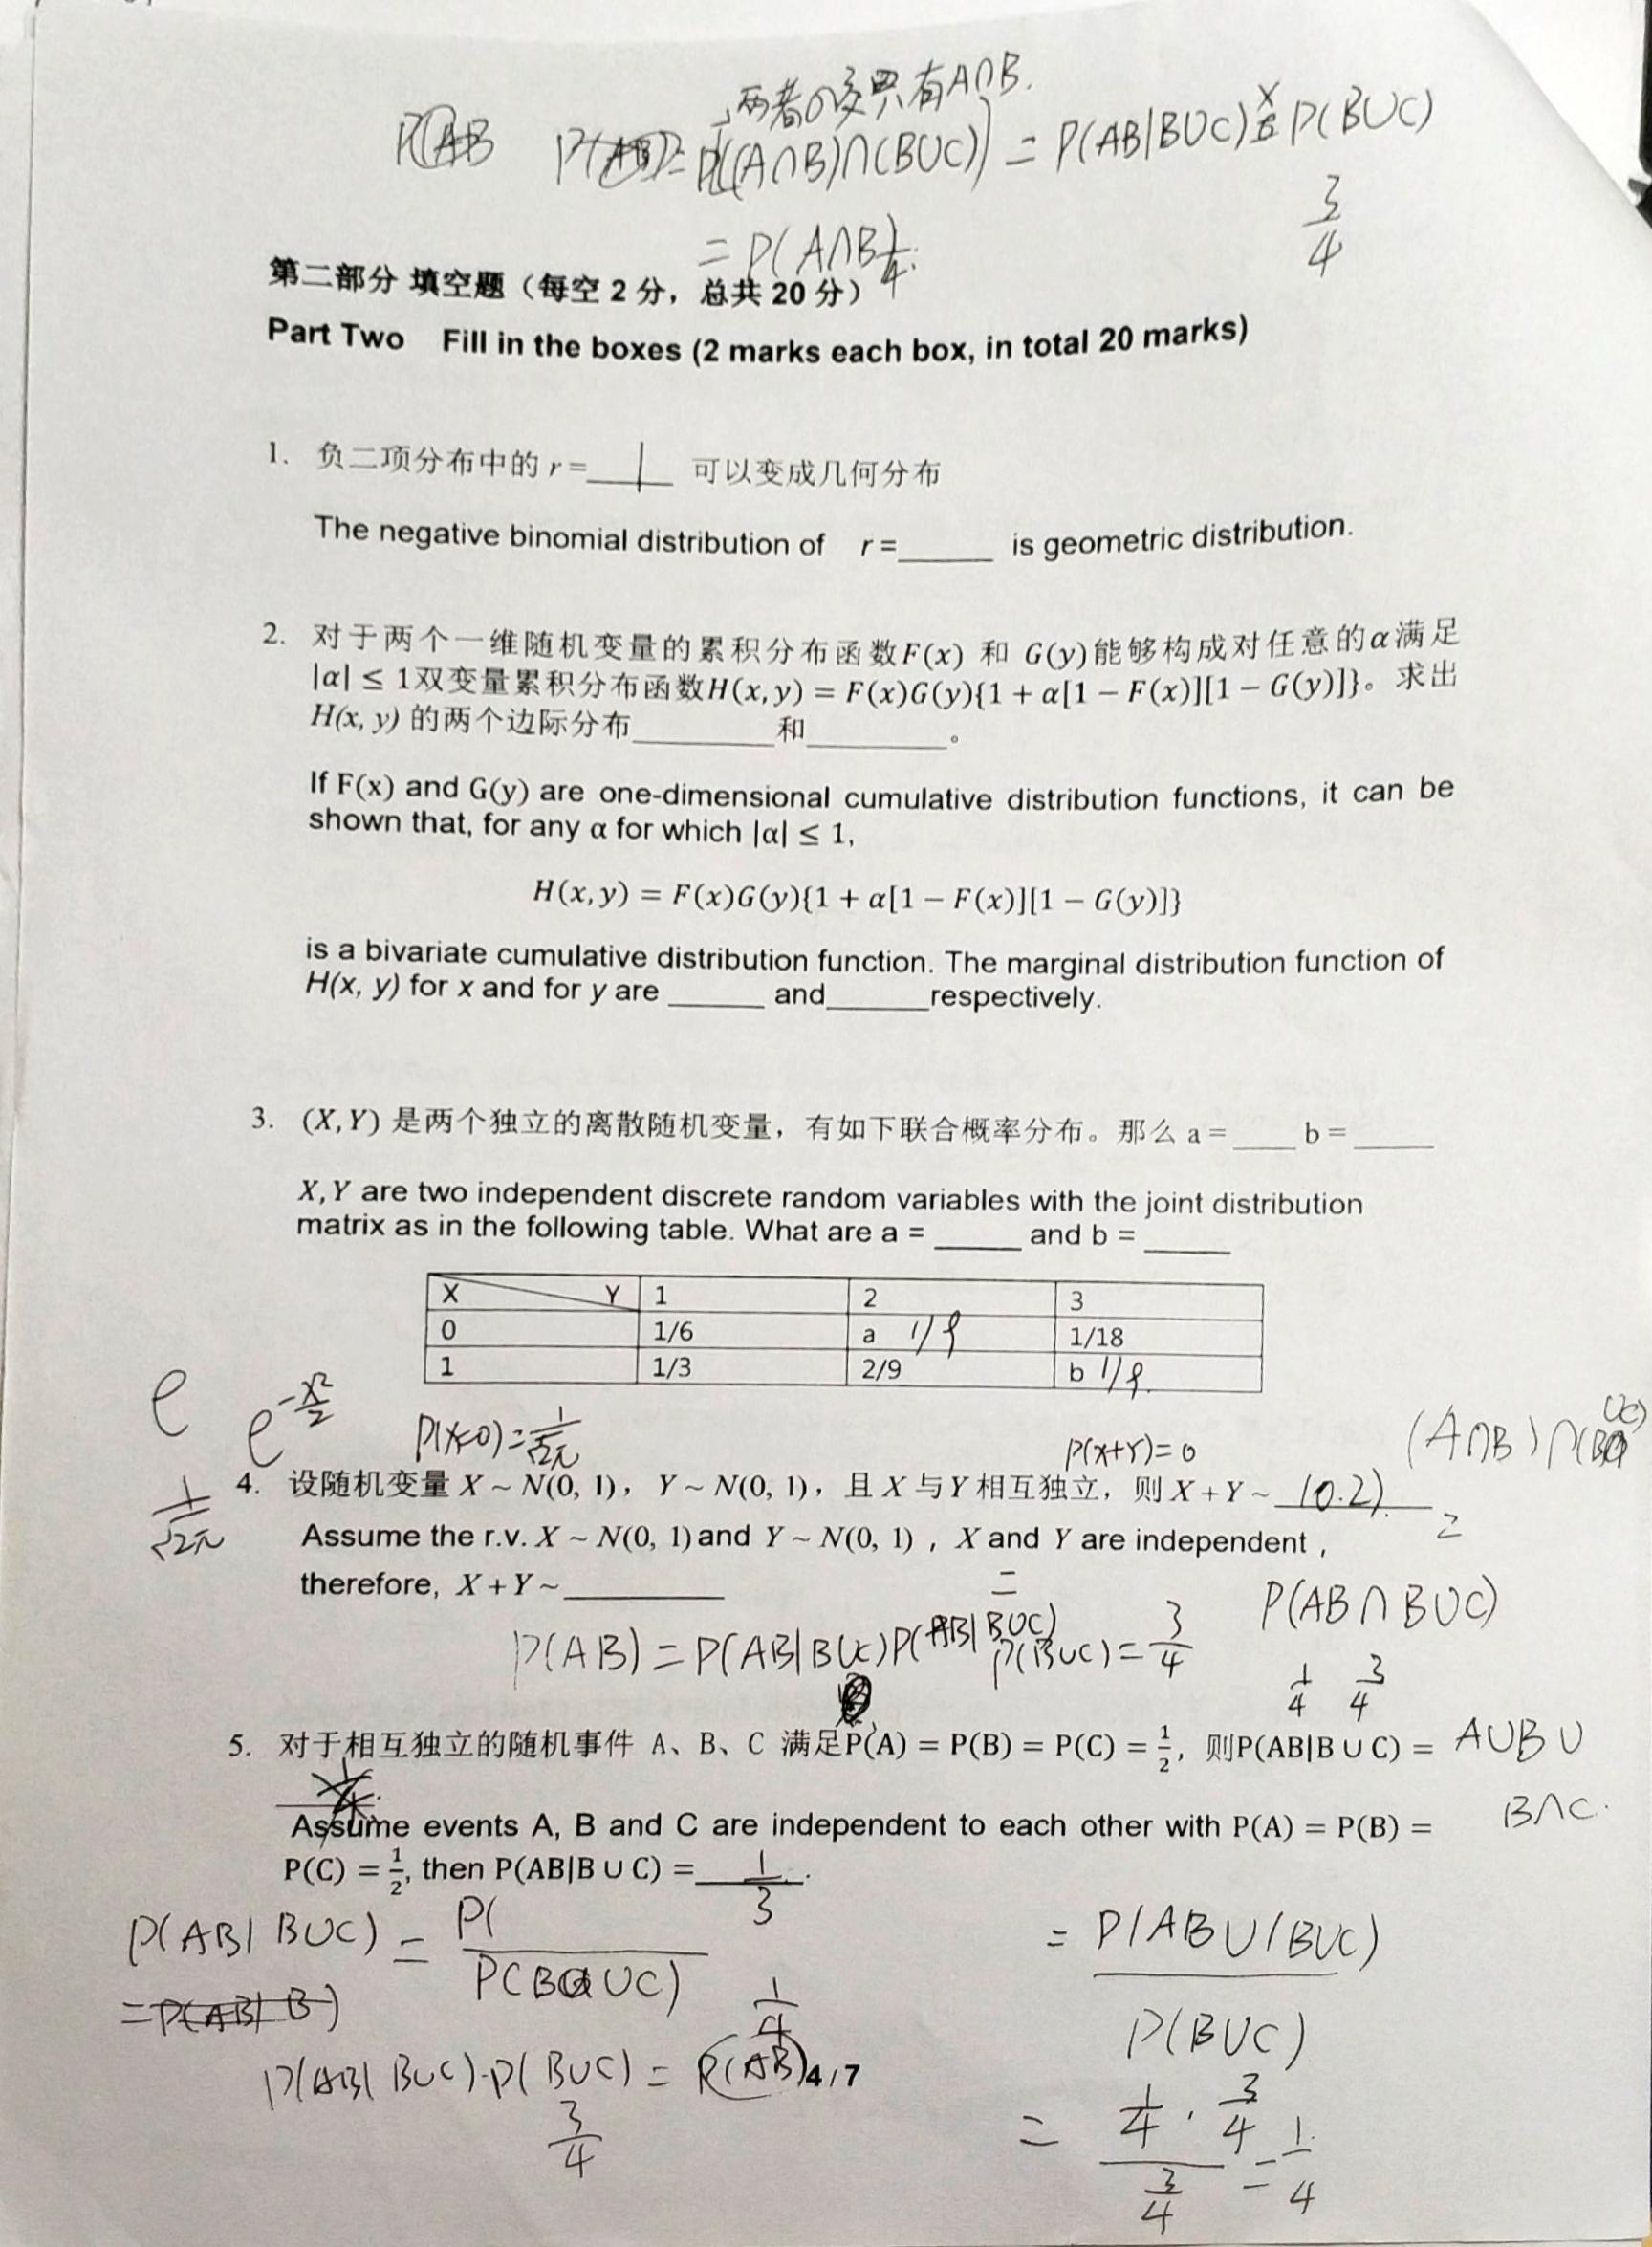 两者的交集只有A∩B.
P(AB = P((A∩B)∩(B∪C)) = P(AB|B∪C) × P(B∪C)
3/4
= P(A∩B) 1/4.
第二部分 填空题（每空 2 分，总共 20 分）
Part Two Fill in the boxes (2 marks each box, in total 20 marks)
1. 负二项分布中的 r = 1 可以变成几何分布
The negative binomial distribution of r =______ is geometric distribution.
2. 对于两个一维随机变量的累积分布函数F(x) 和 G(y)能够构成对任意的α满足
|α| ≤ 1双变量累积分布函数H(x, y) = F(x)G(y){1 + α[1 − F(x)][1 − G(y)]}。求出
H(x, y) 的两个边际分布_________和_________。
If F(x) and G(y) are one-dimensional cumulative distribution functions, it can be
shown that, for any α for which |α| ≤ 1,
H(x, y) = F(x)G(y){1 + α[1 − F(x)][1 − G(y)]}
is a bivariate cumulative distribution function. The marginal distribution function of
H(x, y) for x and for y are ______ and______respectively.
3. (X, Y) 是两个独立的离散随机变量，有如下联合概率分布。那么 a = ____ b = _____
X, Y are two independent discrete random variables with the joint distribution
matrix as in the following table. What are a = _____ and b = _____
X Y 1 2 3
0 1/6 a 1/9 1/18
1 1/3 2/9 b 1/9.
e e^(-x²/2) P(X=0) = 1/√2π P(X+Y)=0 (A∩B)∩(B∪C)
1/√2π
4. 设随机变量 X ~ N(0, 1)，Y ~ N(0, 1)，且 X 与 Y 相互独立，则 X + Y ~ (0.2).
=
Assume the r.v. X ~ N(0, 1) and Y ~ N(0, 1) , X and Y are independent ,
therefore, X + Y ~ __________
=
P(AB∩B∪C)
P(AB) = P(AB|B∪C)P(AB|B∪C) P(B∪C) = 3/4
1/4 3/4
5. 对于相互独立的随机事件 A、B、C 满足P(A) = P(B) = P(C) = 1/2，则P(AB|B ∪ C) =
A∪B∪
B∩C.
Assume events A, B and C are independent to each other with P(A) = P(B) =
P(C) = 1/2, then P(AB|B ∪ C) = 1/3.
P(AB|B∪C) = P( / P(B∪C)
= P(AB∪(B∪C) / P(B∪C)
=P(AB|B)
1/4
P(AB|B∪C)·P(B∪C) = P(AB)
3/4
4 / 7
= 1/4 · 3/4 / 3/4 = 1/4